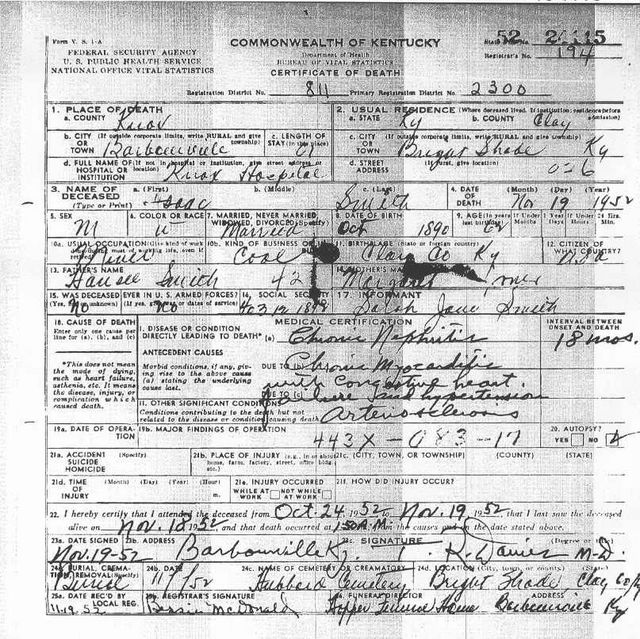 Form V. S. 1-A
FEDERAL SECURITY AGENCY
U. S. PUBLIC HEALTH SERVICE
NATIONAL OFFICE VITAL STATISTICS
COMMONWEALTH OF KENTUCKY
Department of Health
BUREAU OF VITAL STATISTICS
CERTIFICATE OF DEATH
52
Registrar's No. 194
Registration District No. 811 Primary Registration District No. 2300
1. PLACE OF DEATH
a. COUNTY Knox
2. USUAL RESIDENCE (Where deceased lived. If institution: residence before admission)
a. STATE Ky b. COUNTY Clay
b. CITY (If outside corporate limits, write RURAL and give township) OR TOWN Barbourville
c. LENGTH OF STAY (in this place)
c. CITY (If outside corporate limits, write RURAL and give township) OR TOWN Bright Shade Ky
d. FULL NAME OF (If not in hospital or institution, give street address or location) HOSPITAL OR INSTITUTION Knox Hospital
d. STREET ADDRESS (If rural, give location) 026
3. NAME OF DECEASED (Type or Print) a. (First) Isaac b. (Middle) c. (Last) Smith
4. DATE OF DEATH (Month) (Day) (Year) Nov 19 1952
5. SEX M
6. COLOR OR RACE
7. MARRIED, NEVER MARRIED, WIDOWED, DIVORCED (Specify) Married
8. DATE OF BIRTH Oct 1890
9. AGE (In years last birthday) 62 If Under 1 Year If Under 24 Hrs.
10a. USUAL OCCUPATION (Give kind of work done during most of working life, even if retired) Miner
10b. KIND OF BUSINESS OR Coal
11. BIRTHPLACE (State or foreign country) Clay Co Ky
12. CITIZEN OF WHAT COUNTRY?
13. FATHER'S NAME Smith
14. MOTHER'S Margaret
15. WAS DECEASED EVER IN U. S. ARMED FORCES? (Yes, no, or unknown) (If yes, give war or dates of service) No No
16. SOCIAL SECURITY 403 12
17. INFORMANT Sarah Jane Smith
18. CAUSE OF DEATH
Enter only one cause per line for (a), (b), and (c)
MEDICAL CERTIFICATION
INTERVAL BETWEEN ONSET AND DEATH
I. DISEASE OR CONDITION DIRECTLY LEADING TO DEATH* (a) Chronic Nephritis 18 mos.
*This does not mean the mode of dying, such as heart failure, asthenia, etc. It means the disease, injury, or complication which caused death.
ANTECEDENT CAUSES
Morbid conditions, if any, giving rise to the above cause (a) stating the underlying cause last.
DUE TO Chronic Myocarditis
with congestive heart
failure and hypertension
II. OTHER SIGNIFICANT CONDITIONS
Conditions contributing to the death but not related to the disease or condition causing death
Arteriosclerosis
19a. DATE OF OPERATION
19b. MAJOR FINDINGS OF OPERATION
443X-083-17
20. AUTOPSY?
YES NO
21a. ACCIDENT SUICIDE HOMICIDE (Specify)
21b. PLACE OF INJURY (e.g., in or about home, farm, factory, street, office bldg., etc.)
21c. (CITY, TOWN, OR TOWNSHIP) (COUNTY) (STATE)
21d. TIME OF INJURY (Month) (Day) (Year) (Hour) m.
21e. INJURY OCCURRED WHILE AT WORK NOT WHILE AT WORK
21f. HOW DID INJURY OCCUR?
22. I hereby certify that I attended the deceased from Oct. 24, 1952, to Nov. 19, 1952, that I last saw the deceased
alive on Nov. 18 1952, and that death occurred at 1:50 A.M., from the causes and on the date stated above.
23a. DATE SIGNED Nov. 19-52
23b. ADDRESS Barbourville Ky.
23c. SIGNATURE (Degree or title) M.D.
24a. BURIAL, CREMATION, REMOVAL (Specify) Burial
24b. DATE
24c. NAME OF CEMETERY OR CREMATORY Hubbard Cemetery
24d. LOCATION (City, town, or county) (State) Bright Shade Clay Co Ky
25a. DATE REC'D BY LOCAL REG. 11-19-52
25b. REGISTRAR'S SIGNATURE McDonald
26. FUNERAL DIRECTOR Hopper Funeral Home
ADDRESS Barbourville Ky